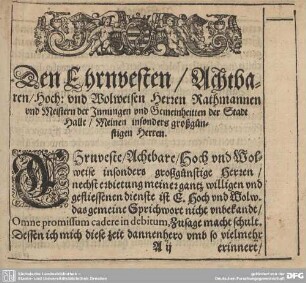 Den Ehrnvesten / Achtba-
ren / Hoch: vnd Wolweisen Herren Rathmannen
vnd Meistern der Jnnungen vnd Gemeinheiten der Stadt
Halle / Meinen insonders großgün-
stigen Herren.
EHrnveste / Achtbare / Hoch vnd Wol-
weise insonders großgünstige Herren /
nechst erbietung meiner gantz willigen vnd
geflissenen dienste ist E. Hoch vnd Wolw.
das gemeine Sprichwort nicht vnbekande /
Omne promissum cadere in debitum, Zusage macht schult.
Dessen ich mich diese zeit dannenhero vmb so vielmehr
A ij erinnert /